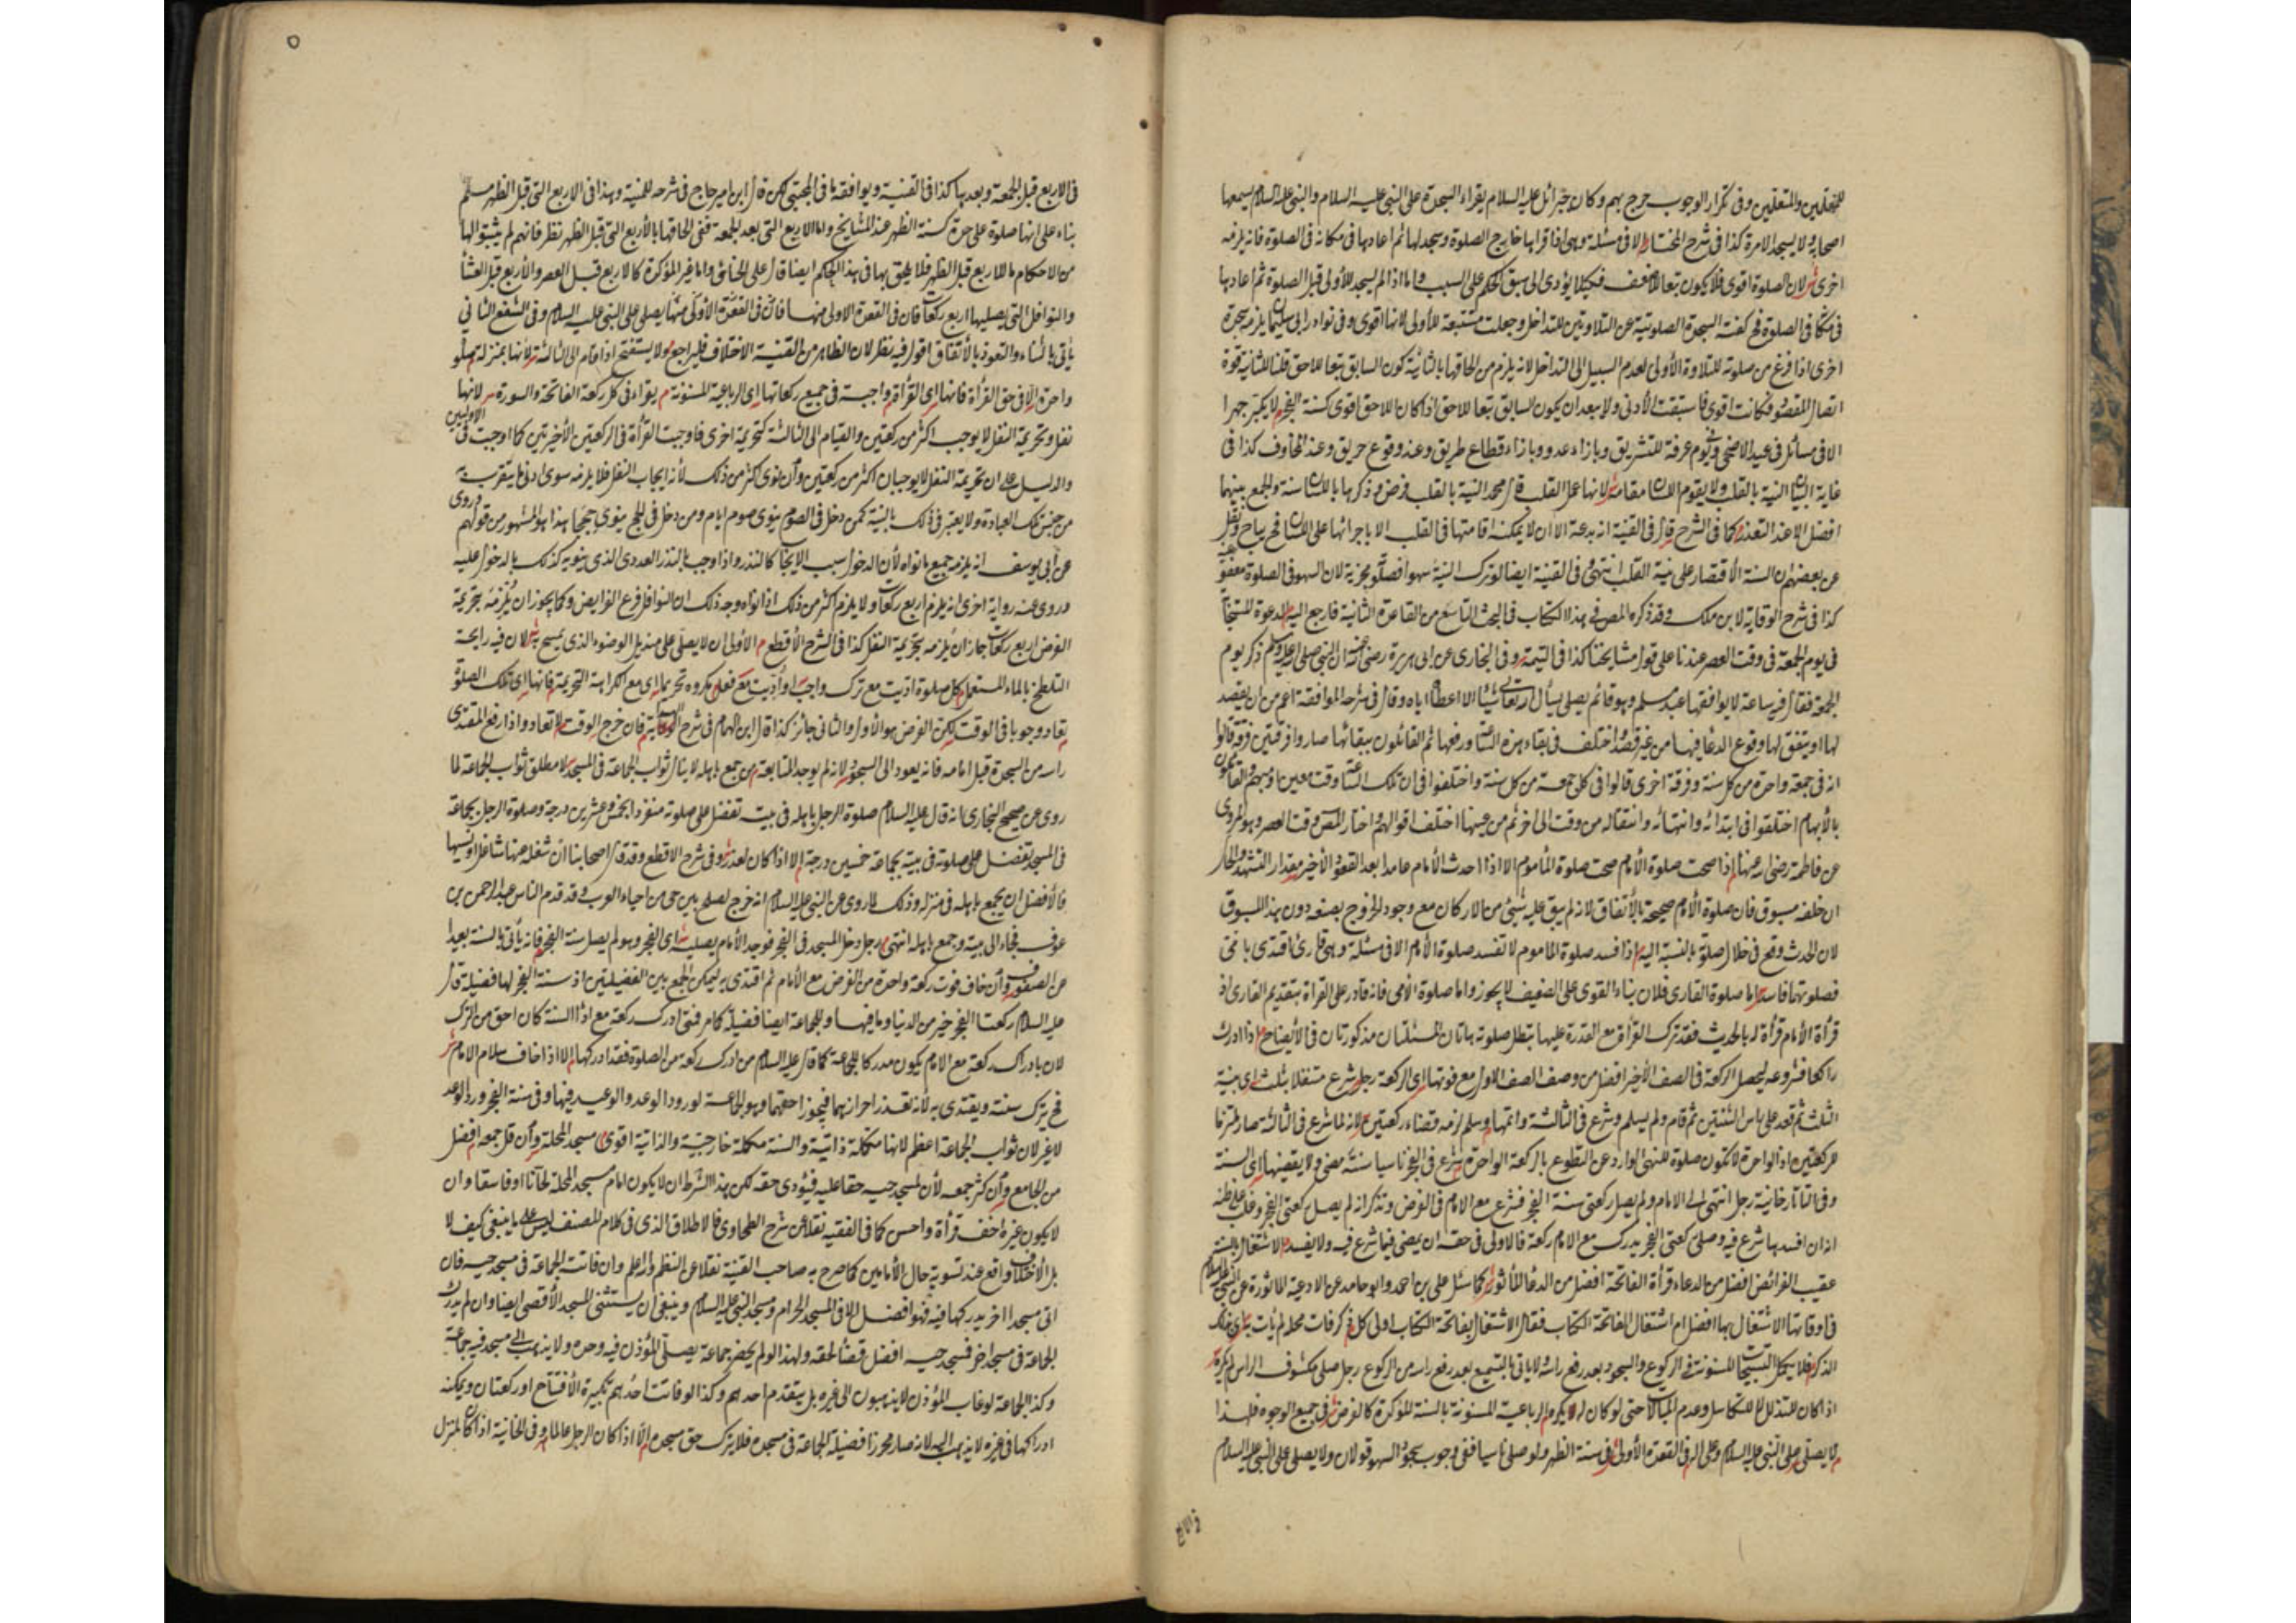 للمعلمين والمتعلمين وفى تكرار الوجوب حرج بهم وكان جبرائل عليه السلام يقراء السجدة على النبى عليه السلام والنبى عليه السلام يسمعها
اصحابه ولا يسجد الا مرة كذا فى شرح المختار الا فى مسئلة وهى اذا قراها خارج الصلوة وسجد لها ثم اعادها فى مكانه فى الصلوة فانه يلزمه
اخرى لان الصلوة اقوى فلا يكون تبعا للاضعف فكيلا يؤدى الى سبق الحكم على السبب واما اذا لم يسجد للأولى قبل الصلوة ثم اعادها
فى مكانها فى الصلوة فح كفته السجدة الصلوتية عن التلاوتين للتداخل وجعلت مستتبعة للأولى لانها اقوى وفى نوادر ابى سليمان يلزمه سجدة
اخرى اذا فرغ من صلوته للتلاوة الأولى لعدم السبيل الى التداخل لانه يلزم من الحاقها بالثانية كون السابق تبعا للاحق قلنا للثانية قوة
اتصال المقصود فكانت اقوى فاستبقت الأدنى ولا يبعد ان يكون السابق تبعا للاحق اذا كان اللاحق اقوى كسنة الفجر لا يكبر جهرا
الا فى مسائل فى عيد الاضحى وفى يوم عرفة للتشريق وبازاء عدو وبازاء قطاع طريق وعند وقوع حريق وعند المخاوف كذا فى
غاية البيان النية بالقلب ولا يقوم اللسان مقامه لانها عمل القلب قال محمد النية بالقلب فرض وذكرها باللسان سنة والجمع بينهما
افضل الا عند التعذر كما فى الشرح قال فى القنية انه بدعة الا ان لا يمكنه اقامتها فى القلب الا باجرائها على اللسان فح يباح ونقل
عن بعضهم ان السنة الاقتصار على نية القلب انتهى وفى القنية ايضا لو ترك النية سهوا فصلوته مجزية لان السهو فى الصلوة معفو
كذا فى شرح الوقاية لابن ملك وقد ذكره المص فى هذا الكتاب فى البحث التاسع من القاعدة الثانية فارجع اليه الدعوة المستجابة
فى يوم الجمعة فى وقت العصر عندنا على قول مشايخنا كذا فى اليتمة وفى البخارى عن ابى هريرة رضى الله عنه ان النبى صلى الله عليه وسلم ذكر يوم
الجمعة فقال فيه ساعة لا يوافقها عبد مسلم وهو قائم يصلى يسأل الله تعالى شيئا الا اعطاه اياه وقال فى شرحه الموافقة اعم من ان يقصد
لها او يتفق لها وقوع الدعا فيها من غير قصد اختلف فى بقاء هذه الساعة ورفعها ثم القائلون ببقائها صاروا فرقتين فرقة قالوا
انه فى جمعة واحدة من كل سنة وفرقة اخرى قالوا فى كل جمعة من كل سنة واختلفوا فى ان تلك الساعة وقت معين او مبهم والقائلون
بالأبهام اختلفوا فى ابتدائه وانتهائه وانتقاله من وقت الى اخر ثم من عينها اختلف اقوالهم واختار المص وقت العصر وهو المروى
عن فاطمة رضى الله عنها اذا صحت صلوة الأمام صحت صلوة المأموم الا اذا احدث الأمام عامدا بعد القعود الأخير مقدار التشهد والحال
ان خلفه مسبوق فان صلوة الأمام صحيحة بالأتفاق لانه لم يبق عليه شئ من الاركان مع وجود الخروج بصنعه دون هذا المسبوق
لان الحدث وقع فى خلال صلوته بالنسبة اليه اذا فسد صلوة الماموم لا تفسد صلوة الأمام الا فى مسئلة وهى قارئ اقتدى بامى
فصلوتهما فاسدة اما صلوة القارى فلان بناء القوى على الضعيف لا يجوز واما صلوة الأمى فانه قادر على القراة بتقديم القارى اذ
قرأة الأمام قرأة له بالحديث فقد ترك القرأة مع القدرة عليها بتطل صلوته هاتان المسئلتان مذكورتان فى الأيضاح اذا ادرك
راكعا فشروعه ليحصل الركعة فى الصف الأخير افضل من وصف الصف الاول مع فوتها اى الركعة رجل شرع متنفلا بثلث اى بنية
الثلث ثم قعد على راس الثنتين ثم قام ولم يسلم وشرع فى الثالثة واتمها وسلم لزمه قضاء ركعتين لانه لما شرع فى الثالثة صار ملتزما
للركعتين اذ الواحدة لا تكون صلوة للنهى الوارد عن التطوع بالركعة الواحدة شرع فى الفجر ناسيا سنته مضى ولا يقضيها اى السنة
وفى التاتارخانية رجل انتهى الى الامام ولم يصل ركعتى سنة الفجر فشرع مع الامام فى الفرض وتذكر انه لم يصل ركعتى الفجر وغلب على ظنه
انه ان افسد ما شرع فيه وصلى ركعتى الفجر يدرك مع الامام ركعة فالاولى فى حقه ان يمضى فيما شرع فيه ولا يفسد الاشتغال بالسنة
عقيب الفرائض افضل من الدعاء قرأة الفاتحة افضل من الدعا المأثور كما سئل على بن احمد وابو حامد عن الادعية المأثورة عن النبى عليه السلام
فى اوقاتها الاشتغال بها افضل ام اشتغال الفاتحة الكتاب فقال الاشتغال بفاتحة الكتاب اولى كل ذكر فات محله لم يأت به اى بذلك
الذكر فلا يكمل التسبيحات المسنونة فى الركوع والسجود بعد رفع راسه ولا ياتى بالتسميع بعد رفع راسه من الركوع رجل صلى مكشوف الراس لم يكره
اذا كان للتذلل لا للتكاسل وعدم المبالاة حتى لو كان له يكره الرباعية المسنونة بالسنة المؤكدة كالفرض فى جميع الوجوه فلهذا
لا يصلى على النبى عليه السلام وعلى اله فى القعدة الأولى فى سنة الظهر ولو صلى ناسيا ففى وجوب سجود السهو قولان ولا يصلى على النبى عليه السلام
٥
فى الاربع قبل الجمعة وبعدها كذا فى القنية ويوافقه ما فى المجتبى لكن قال ابن امير حاج فى شرحه للمنية وهذا فى الاربع التى قبل الظهر مسلم
بناء على انها صلوة على حدة كسنة الظهر عند المشايخ واما الاربع التى بعد الجمعة ففى الحاقها بالأربع التى قبل الظهر نظر فانهم لم يثبتوا لها
من الاحكام ما للاربع قبل الظهر فلا يلحق بها فى هذا الحكم ايضا قال على الخانى واما غير المؤكدة كالاربع قبل العصر والأربع قبل العشاء
والنوافل التى يصليها اربع ركعات فان فى القعدة الاولى منها يصلى على النبى عليه السلام وفى الشفع الثانى
يأتى بالثناء والتعوذ بالاتفاق اقول فيه نظر لان الظاهر من القنية الاختلاف فليراجع ولا يستفتح اذا قام الى الثالثة لأنها بمنزلة صلوة
واحدة الا فى حق القرأة فانها اى القرأة واجبة فى جميع ركعاتها اى الرباعية المسنونة يقراء فى كل ركعة الفاتحة والسورة لانها
نفل وتحريمة النفل لا يوجب اكثر من ركعتين والقيام الى الثالثة كتحريمة اخرى فاوجبت القرأة فى الركعتين الأخيرتين كما اوجبت فى الاوليين
والدليل على ان تحريمة النفل لا يوجبان اكثر من ركعتين وان نوى اكثر من ذلك لأنه ايجاب النفل فلا يلزمه سوى ادنى ما يتقرب به
من جنس تلك العبادة ولا يعتبر فى ذلك بالنية كمن دخل فى الصوم ينوى صوم ايام ومن دخل فى الحج ينوى حججا هذا هو المشهور من قولهم وروى
عن ابى يوسف انه يلزمه جميع ما نواه لأن الدخول سبب الايجاب كالنذر واذا وجب بالنذر العدد الذى ينويه كذلك بالدخول عليه
وروى عنه رواية اخرى انه يلزم اربع ركعات ولا يلزم اكثر من ذلك اذا نواه وجه ذلك ان النوافل فرع الفرايض وكما يجوز ان يلزمه بتحريمة
الفرض اربع ركعات جاز ان يلزمه بتحريمة النفل كذا فى الشرح الأقطع الأولى ان لا يصلى على منديل الوضوء الذى يمسح به لان فيه رايحة
التلطخ بالماء المستعمل كل صلوة اديت مع ترك واجب او اديت مع فعل مكروه تحريما اى مع الكراهة التحريمة فانها اى تلك الصلوة
تعاد وجوبا فى الوقت لكن الفرض هو الأول والثانى جائز كذا قال ابن الهمام فى شرح الهداية فان خرج الوقت لا تعاد واذا رفع المقتدى
راسه من السجدة قبل امامه فانه يعود الى السجود لانه لم يوجد المتابعة من جمع باهله لا ينال ثواب الجماعة فى المسجد لا مطلق ثواب الجماعة لما
روى عن صحيح البخارى انه قال عليه السلام صلوة الرجل باهله فى بيته تفضل على صلوته منفردا بخمس وعشرين درجة وصلوة الرجل بجماعة
فى المسجد تفضل على صلوته فى بيته بجماعة خمسين درجة الا اذا كان لعذر وفى شرح الاقطع وقد قال اصحابنا ان شغله عنها شاغل او نسيها
فالأفضل ان يجمع باهله فى منزله وذلك لما روى عن النبى عليه السلام انه خرج لصلح بين حى من احياء العرب وقد قدم الناس عبد الرحمن بن
عوف فجاء الى بيته وجمع باهله انتهى رجل دخل المسجد فى الفجر فوجد الأمام يصليه اى الفجر وهو لم يصل سنة الفجر فانه يأتى بالسنة بعيدا
عن الصفوف وان خاف فوت ركعة واحدة من الفرض مع الأمام ثم اقتدى به ليمكن الجمع بين الفضيلتين اذ سنة الفجر لها فضيلة قال
عليه السلام ركعتا الفجر خير من الدنيا وما فيها وللجماعة ايضا فضيلة كامر فمتى ادرك ركعة مع اذا السنة كان احق من الترك
لان بادراك ركعة مع الامام يكون مدركا للجماعة كما قال عليه السلام من ادرك ركعة من الصلوة فقد ادركها الا اذا خاف سلام الامام
فح يترك سنته ويقتدى به لانه تعذر احرازهما فيجوز احقهما وهو الجماعة لورود الوعد والوعيد فيها وفى سنة الفجر ورد الوعد
لا غير لان ثواب الجماعة اعظم لانها مكملة ذاتية والسنة مكملة خارجية والذاتية اقوى مسجد المحلة وان قل جمعه افضل
من الجامع وان كثر جمعه لأن لمسجد حيه حقا عليه فيؤدى حقه لكن بهذا الشرط ان لا يكون امام مسجد المحلة لحانا او فاسقا وان
لا يكون غيره اخف قرأة واحسن كما فى الفقيه نقلا عن شرح الطحاوى فالاطلاق الذى فى كلام المصنف ليس على ما ينبغى كيف لا
بل الاختلاف واقع عند تسوية حال الأمامين كما صرح به صاحب القنية نقلا عن النظم والله اعلم وان فاتته الجماعة فى مسجد حيه فان
اتى مسجدا اخر يدركها فيه فهو افضل الا فى المسجد الحرام ومسجد النبى عليه السلام وينبغى ان يستثنى المسجد الأقصى ايضا وان لم يدرك
الجماعة فى مسجد اخر فمسجد حيه افضل قضاء لحقه ولهذا لو لم يحضر جماعة يصلى المؤذن فيه وحده ولا يذهب الى مسجد فيه جماعة
وكذا الجماعة لو غاب المؤذن لا يذهبون الى غيره بل يتقدم احدهم وكذا لو فاتت احدهم تكبيرة الأفتتاح او ركعتان ويمكنه
ادراكها فى غيره لا يذهب اليه لانه صار محرزا فضيلة الجماعة فى مسجده فلا يترك حق مسجده الا اذا كان الرجل عالما وفى الخانية اذا كان لمنزل